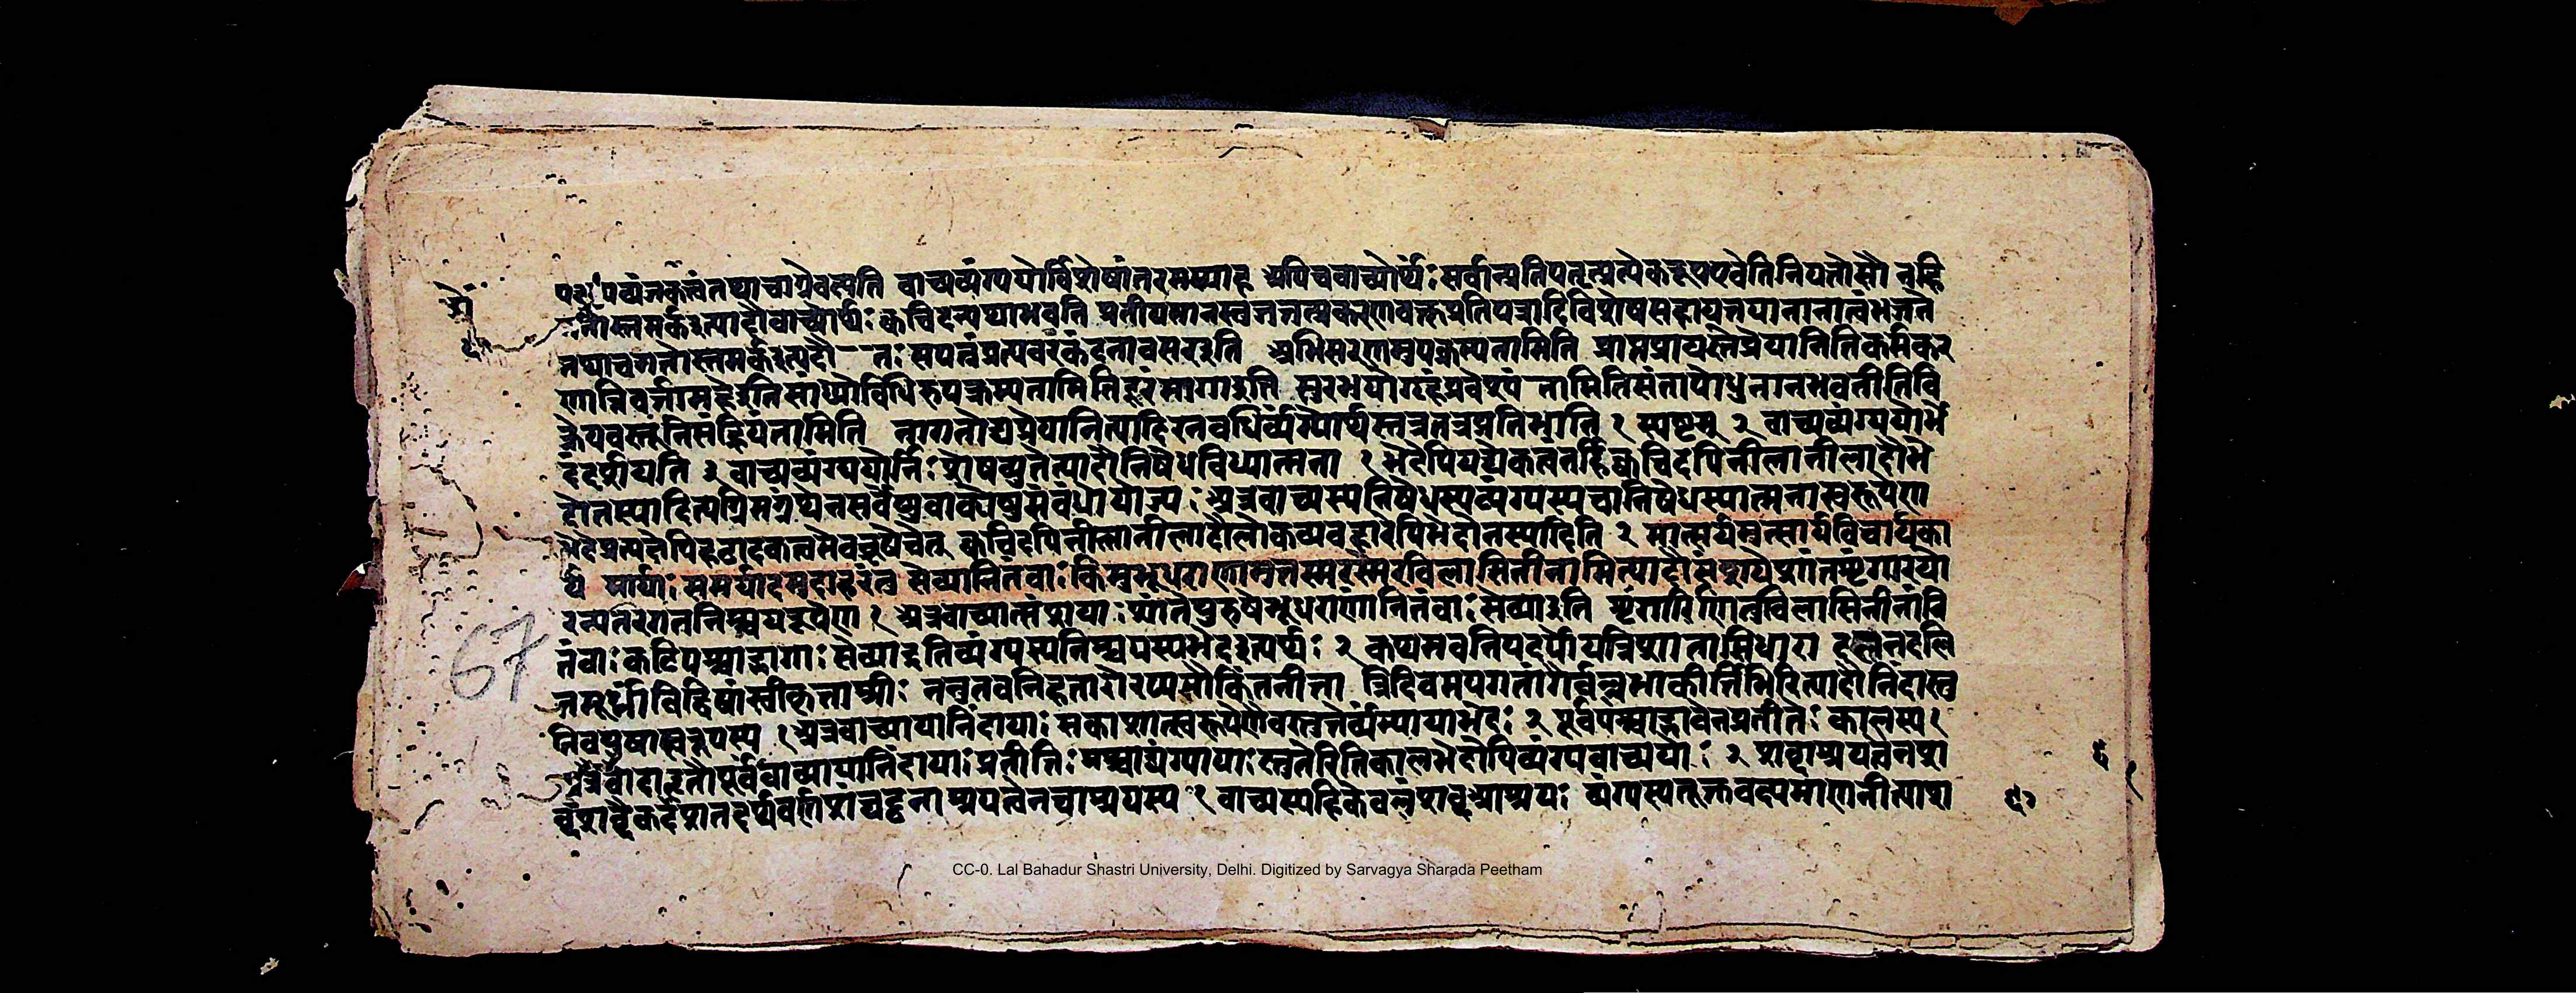 वाच्यव्यंग्ययोर्विशेषांतरमप्याह अपिचवाच्योर्थः सर्वान्प्रतिपतृन्प्रत्येकरूपएवेतिनियतोसौ नहि
गतोस्तमर्कइत्यादौवाच्योर्थः क्वचिदन्यथाभवति प्रतीयमानस्तुतत्तत्प्रकरणवक्तृप्रतिपत्रादिविशेषसहायतयानानात्वंभजते
तथाचगतोस्तमर्कइत्यदौ तः सपत्नंप्रत्यवस्कंदनावसरइति अभिसरणमुपक्रम्यतामिति प्राप्तप्रायस्तेप्रेयानितिकर्मकर
णान्निवर्तामहइतिसांध्योविधिरुपक्रम्यतामितिदूरंमागाइति सुरभयोगृहंप्रवेश्यंतामितिसंतापोधुनानभवतीतिवि
क्रेयवस्तूनिसंह्रियंतामिति नागतोद्यप्रेयानित्यादिरनवधिर्व्यंग्योर्थस्तत्रतत्रप्रतिभाति १ स्पष्टम् २ वाच्यव्यंग्ययोर्भे
दंदर्शयति ३ वाच्यव्यंग्ययोर्निःशेषच्युतेत्यादौनिषेधविध्यात्मना १ भेदेपियद्येकत्वंतर्हिक्वचिदपिनीलानीलादौभे
दोनस्यादित्यग्रिमग्रंथेनसर्वेषुवाक्येषुसंबंधोयोज्यः अत्रवाच्यस्यनिषेधस्यव्यंग्यस्यचानिषेधस्यात्मनास्वरूपेण
क्वचिदपिनीलानीलादौलोकव्यवहारेपिभेदोनस्यादिति २ मात्सर्यमुत्सार्यविचार्यका
र्य मार्याः समर्यादमुदाहरंतु सेव्यानितंवाः किमुभूधराणामुतस्मरस्मेरविलासिनीनामित्यादौसंशयशांतशृंगारयो
रन्यतरगतनिश्चयरूपेण १ अत्रवाच्यात्संशया शांतैपुरुषैभूधराणांनितंवाः सेव्याइति शृंगारिभिस्तुविलासिनीनांनि
तंवाः कटिपश्चाद्भागाः सेव्याइतिव्यंग्यस्यनिश्चयस्यभेदइत्यर्थः २ कथमवनिपदर्पोयन्निशातासिधारा दलनदलि
तमूर्ध्नांविद्विषांस्वीकृताश्रीः ननुतवनिहतारेरप्यसौकिंननीता त्रिदिवमपगतांगैर्वल्लभाकीर्तिभिरित्यादौनिंदास्तु
तिवपुषास्वरूपस्य १ अत्रवाच्यायानिंदायाः सकाशात्स्वरूपेणैवस्तुतेर्व्यंग्यायाभेदः २ पूर्वपश्चाद्भावेनप्रतीतेः कालस्य १
पूर्ववाच्यायानिंदायाः प्रतीतिः पश्चाद्व्यंग्यायाः स्तुतेरितिकालभेदोपिव्यंग्यवाच्ययोः २ शब्दाश्रयत्वेनश
ब्दशब्दैकदेशतदर्थवर्णसंघटनाश्रयत्वेनचाश्रयस्य १ वाच्यस्यहिकेवलंशब्दआश्रयः व्यंग्यस्यतूक्तवक्ष्यमाणनीत्याश
67
CC-0. Lal Bahadur Shastri University, Delhi. Digitized by Sarvagya Sharada Peetham